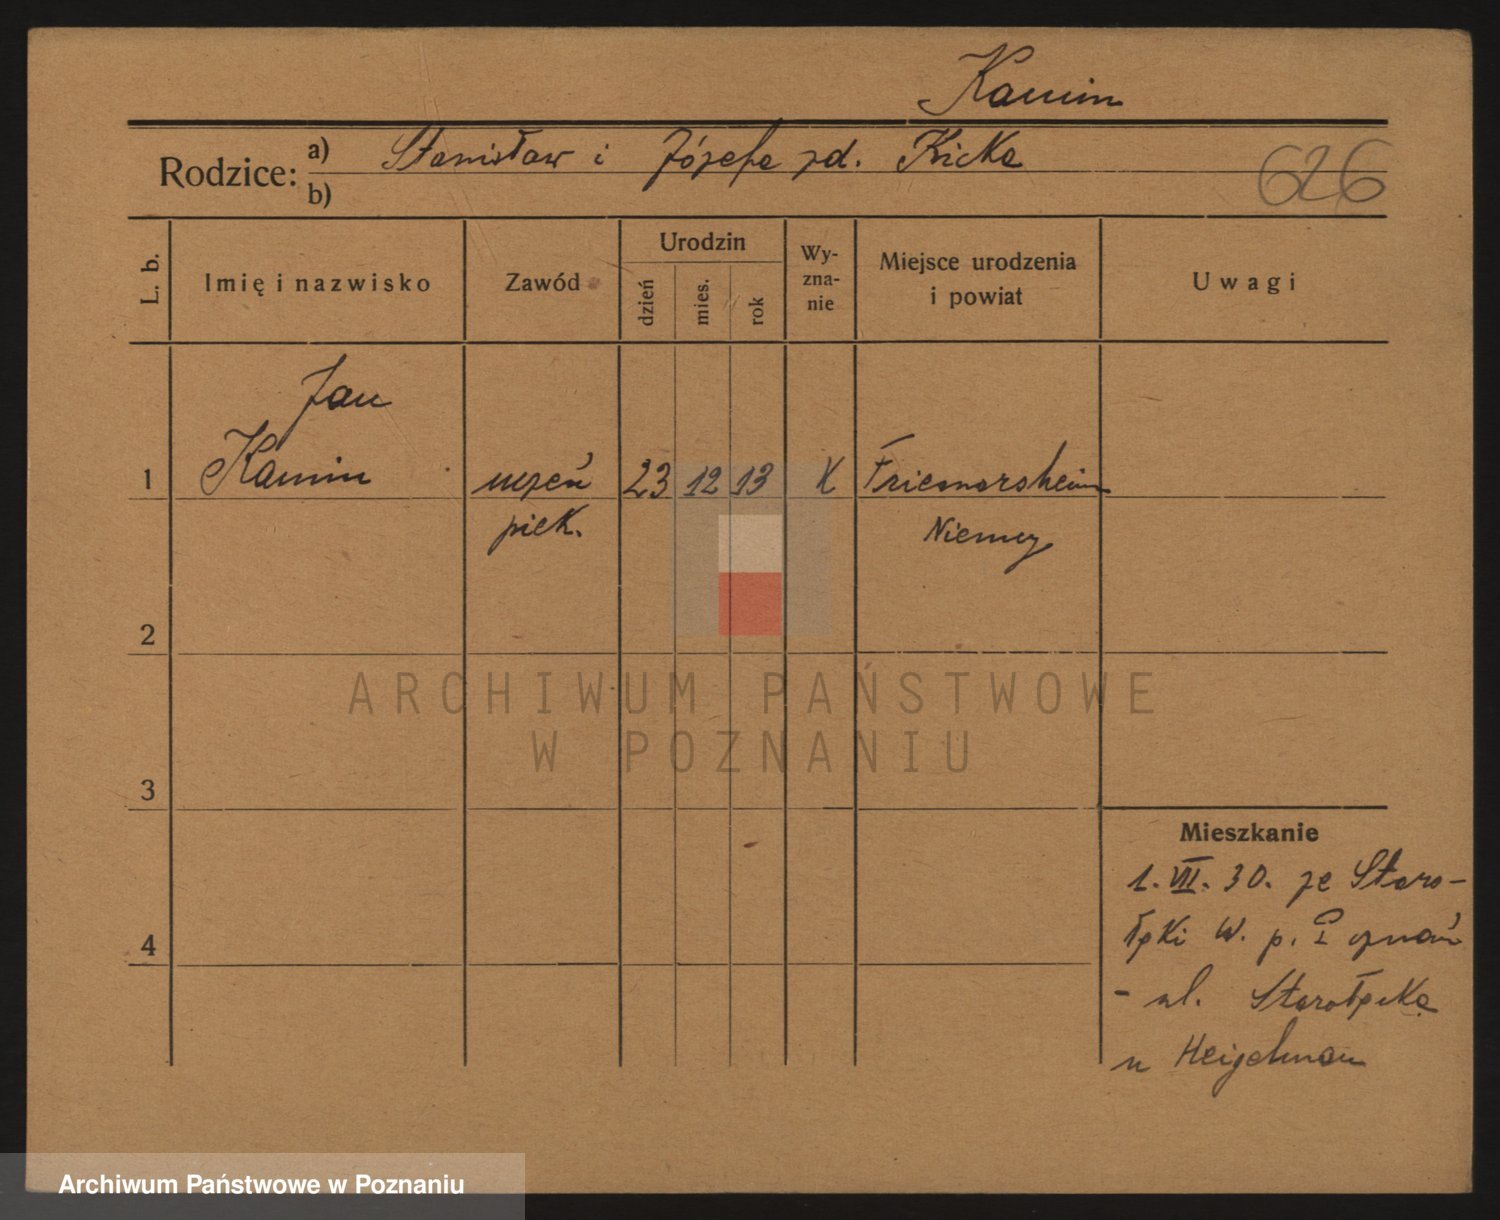 Kamin
Rodzice:
a) Stanisław i Józefa zd. Kicka
b)
626
L. b.
Imię i nazwisko
Zawód
Urodzin
dzień
mies.
rok
Wy-
zna-
nie
Miejsce urodzenia
i powiat
Uwagi
Jan
1 Kamin uczeń 23 12 13 K Friemersheim
piek. Niemcy
2
3
4
Mieszkanie
1. VII. 30. ze Staro-
łęki W. p. Poznań
- ul. Starołęcka
u
ARCHIWUM PAŃSTWOWE
W POZNANIU
Archiwum Państwowe w Poznaniu